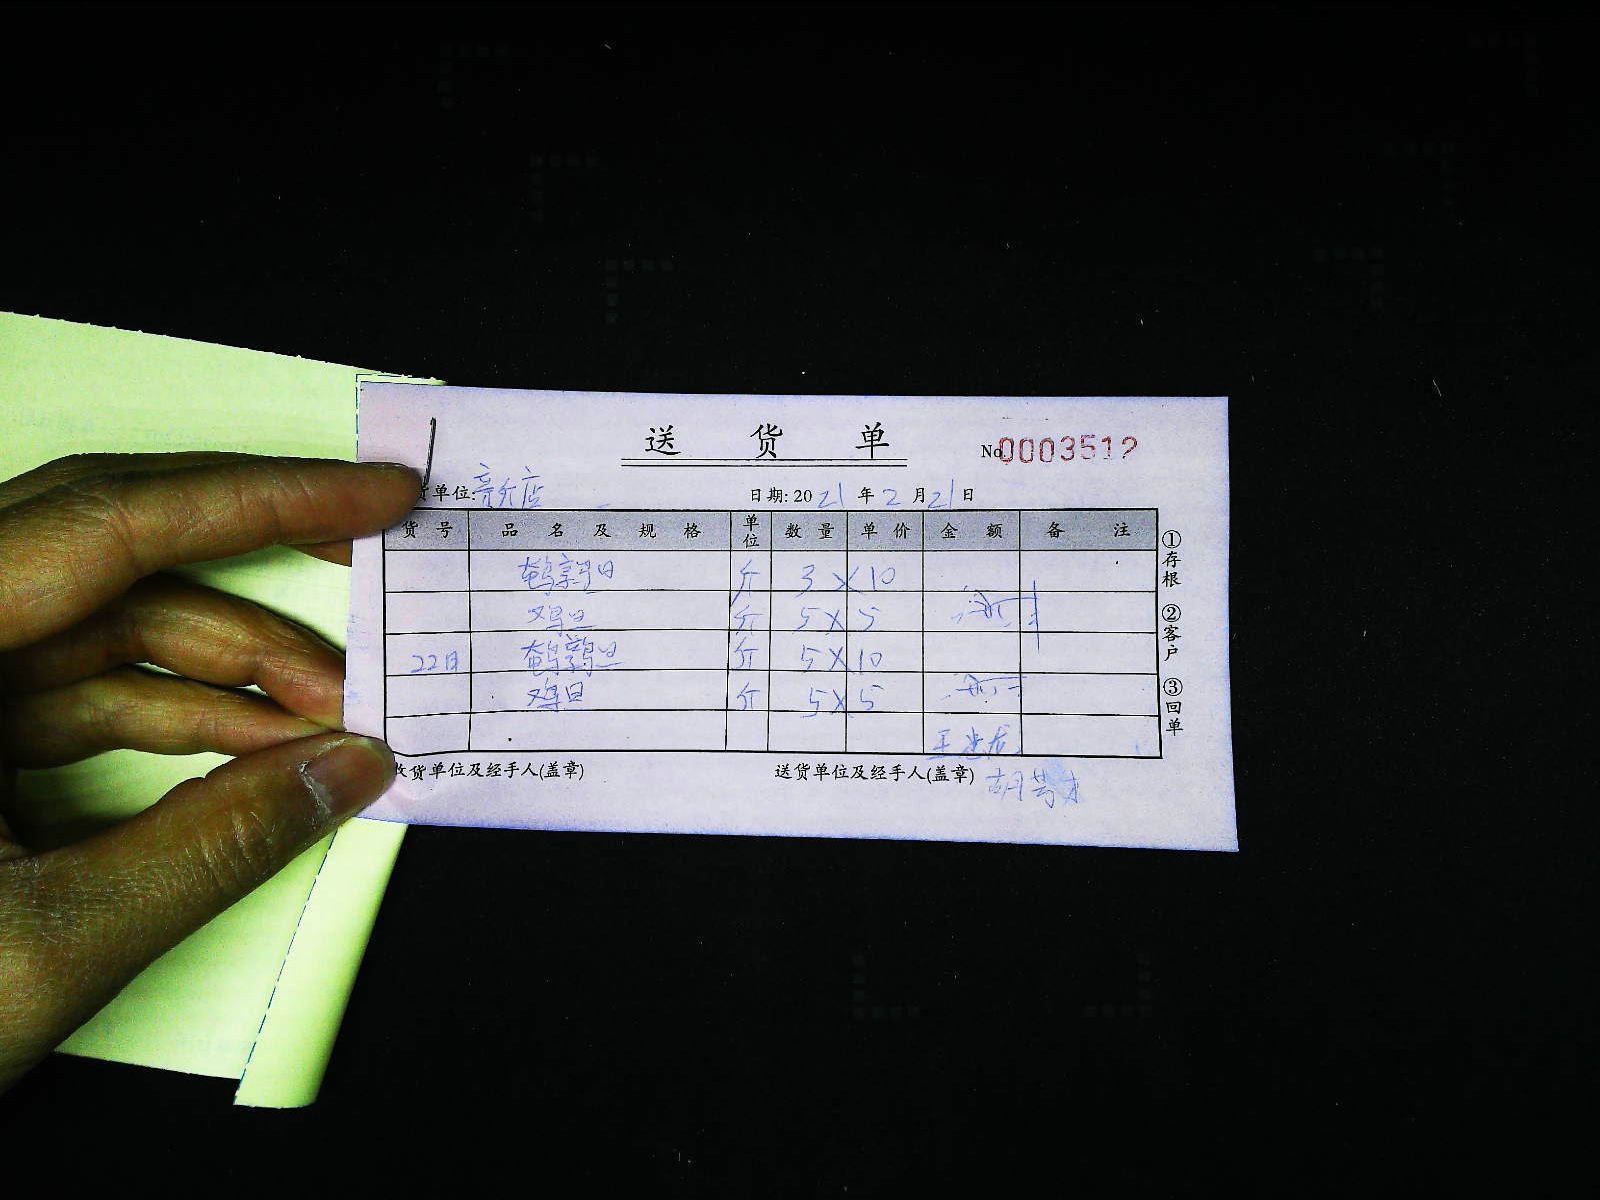 送货单
No.0003512
货单位:
日期: 2021年2月21日
货号 品名及规格 单位 数量 单价 金额 备注
鹌鹑旦 斤 3×10
鸡旦 斤 5×5
22日 鹌鹑旦 斤 5×10
鸡旦 斤 5×5
收货单位及经手人(盖章) 送货单位及经手人(盖章)
①存根 ②客户 ③回单